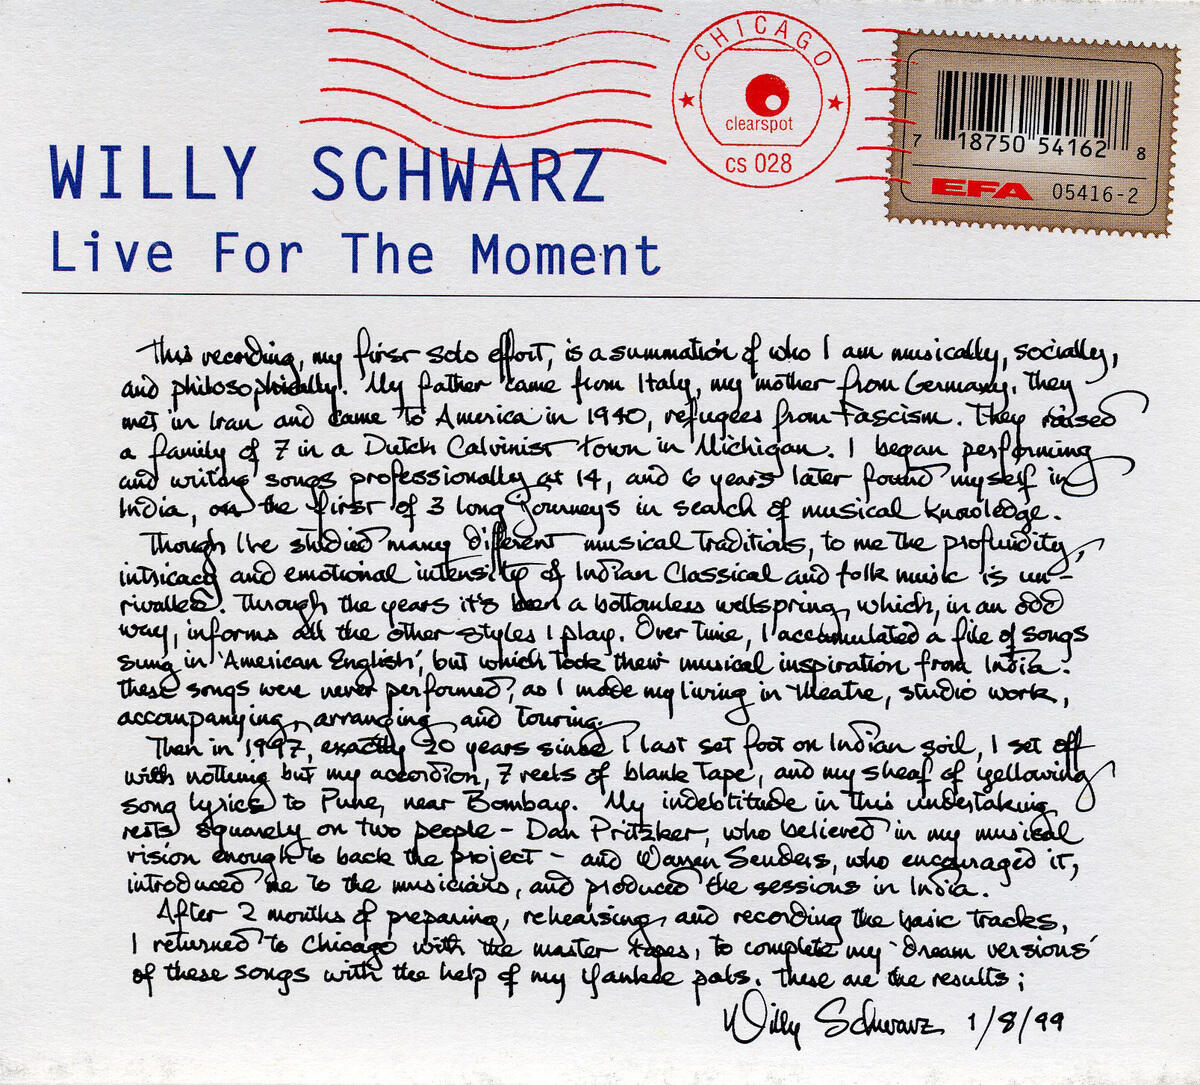 CHICAGO
clearspot
cs 028
7 18750 54162 8
EFA 05416-2
WILLY SCHWARZ
Live For The Moment
This recording, my first solo effort, is a summation of who I am musically, socially,
and philosophically. My father came from Italy, my mother from Germany. They
met in Iran and came to America in 1940, refugees from Fascism. They raised
a family of 7 in a Dutch Calvinist town in Michigan. I began performing
and writing songs professionally at 14, and 6 years later found myself in
India, on the first of 3 long journeys in search of musical knowledge.
Though I've studied many different musical traditions, to me the profundity,
intricacy and emotional intensity of Indian Classical and folk music is un-
rivalled. Through the years it's been a bottomless wellspring, which, in an odd
way, informs all the other styles I play. Over time, I accumulated a file of songs
sung in 'American English', but which took their musical inspiration from India.
These songs were never performed, as I made my living in theatre, studio work,
accompanying, arranging and touring.
Then in 1997, exactly 20 years since I last set foot on Indian soil, I set off
with nothing but my accordion, 7 reels of blank tape, and my sheaf of yellowing
song lyrics to Pune, near Bombay. My indebtitude in this undertaking
rests squarely on two people - Dan Pritzker, who believed in my musical
vision enough to back the project - and Warren Senders, who encouraged it,
introduced me to the musicians, and produced the sessions in India.
After 2 months of preparing, rehearsing, and recording the basic tracks,
I returned to Chicago with the master tapes, to complete my 'dream versions'
of these songs with the help of my Yankee pals. These are the results;
Willy Schwarz 1/8/99